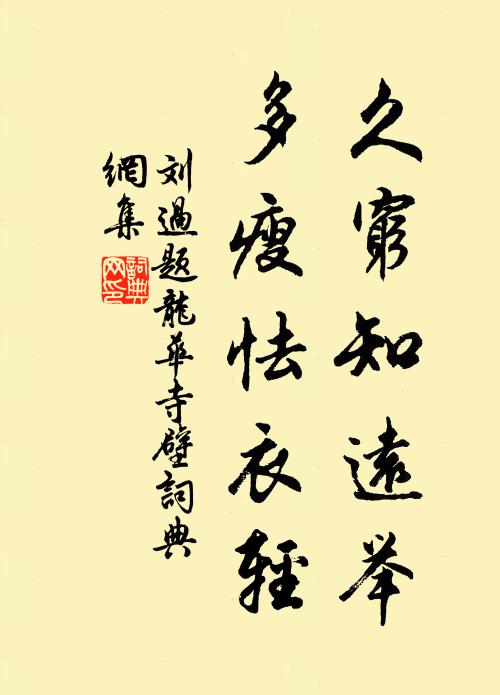 久窮知遠举
多瘦怯衣輕
刘過題龍華寺壁詞典
網集
詞典网印